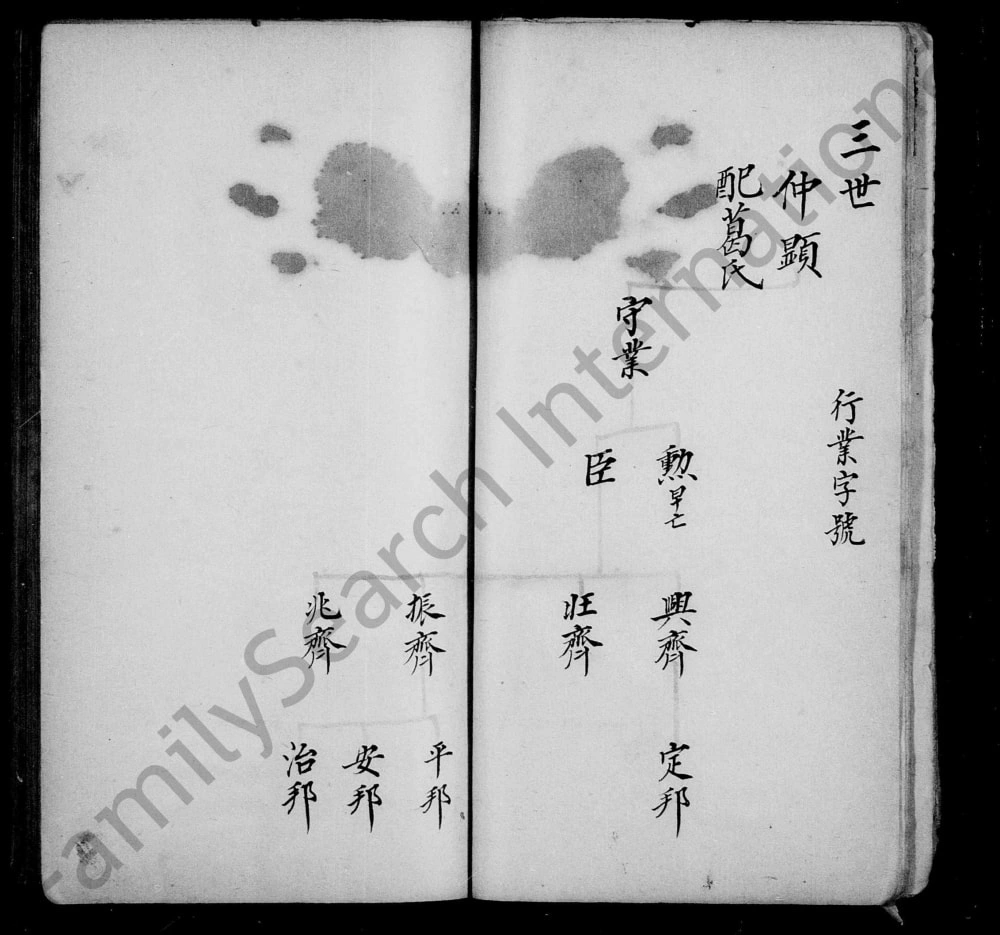 三世
行業字號
仲顕
配葛氏
守業
勲早亡
臣
興齊
旺齊
振齊
兆齊
定邦
平邦
安邦
治邦
FamilySearch International